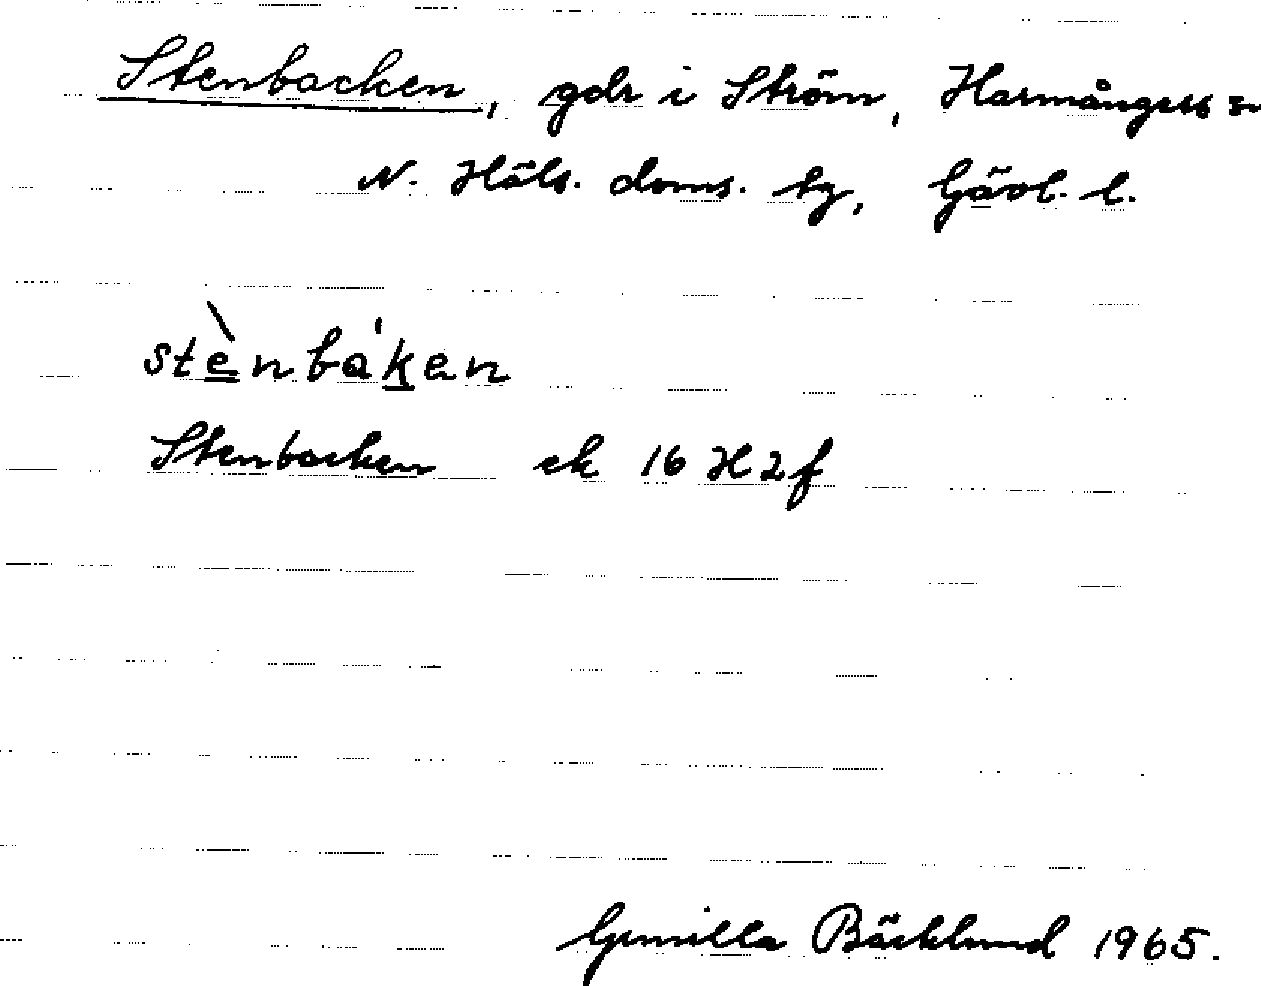 Stenbacken, gdr i Ström, Harmångers sn
N. Häls. doms. tg, Gävl. l.
stènbáken
Stenbacken ek 16 H 2 f
Gunilla Bäcklund 1965.